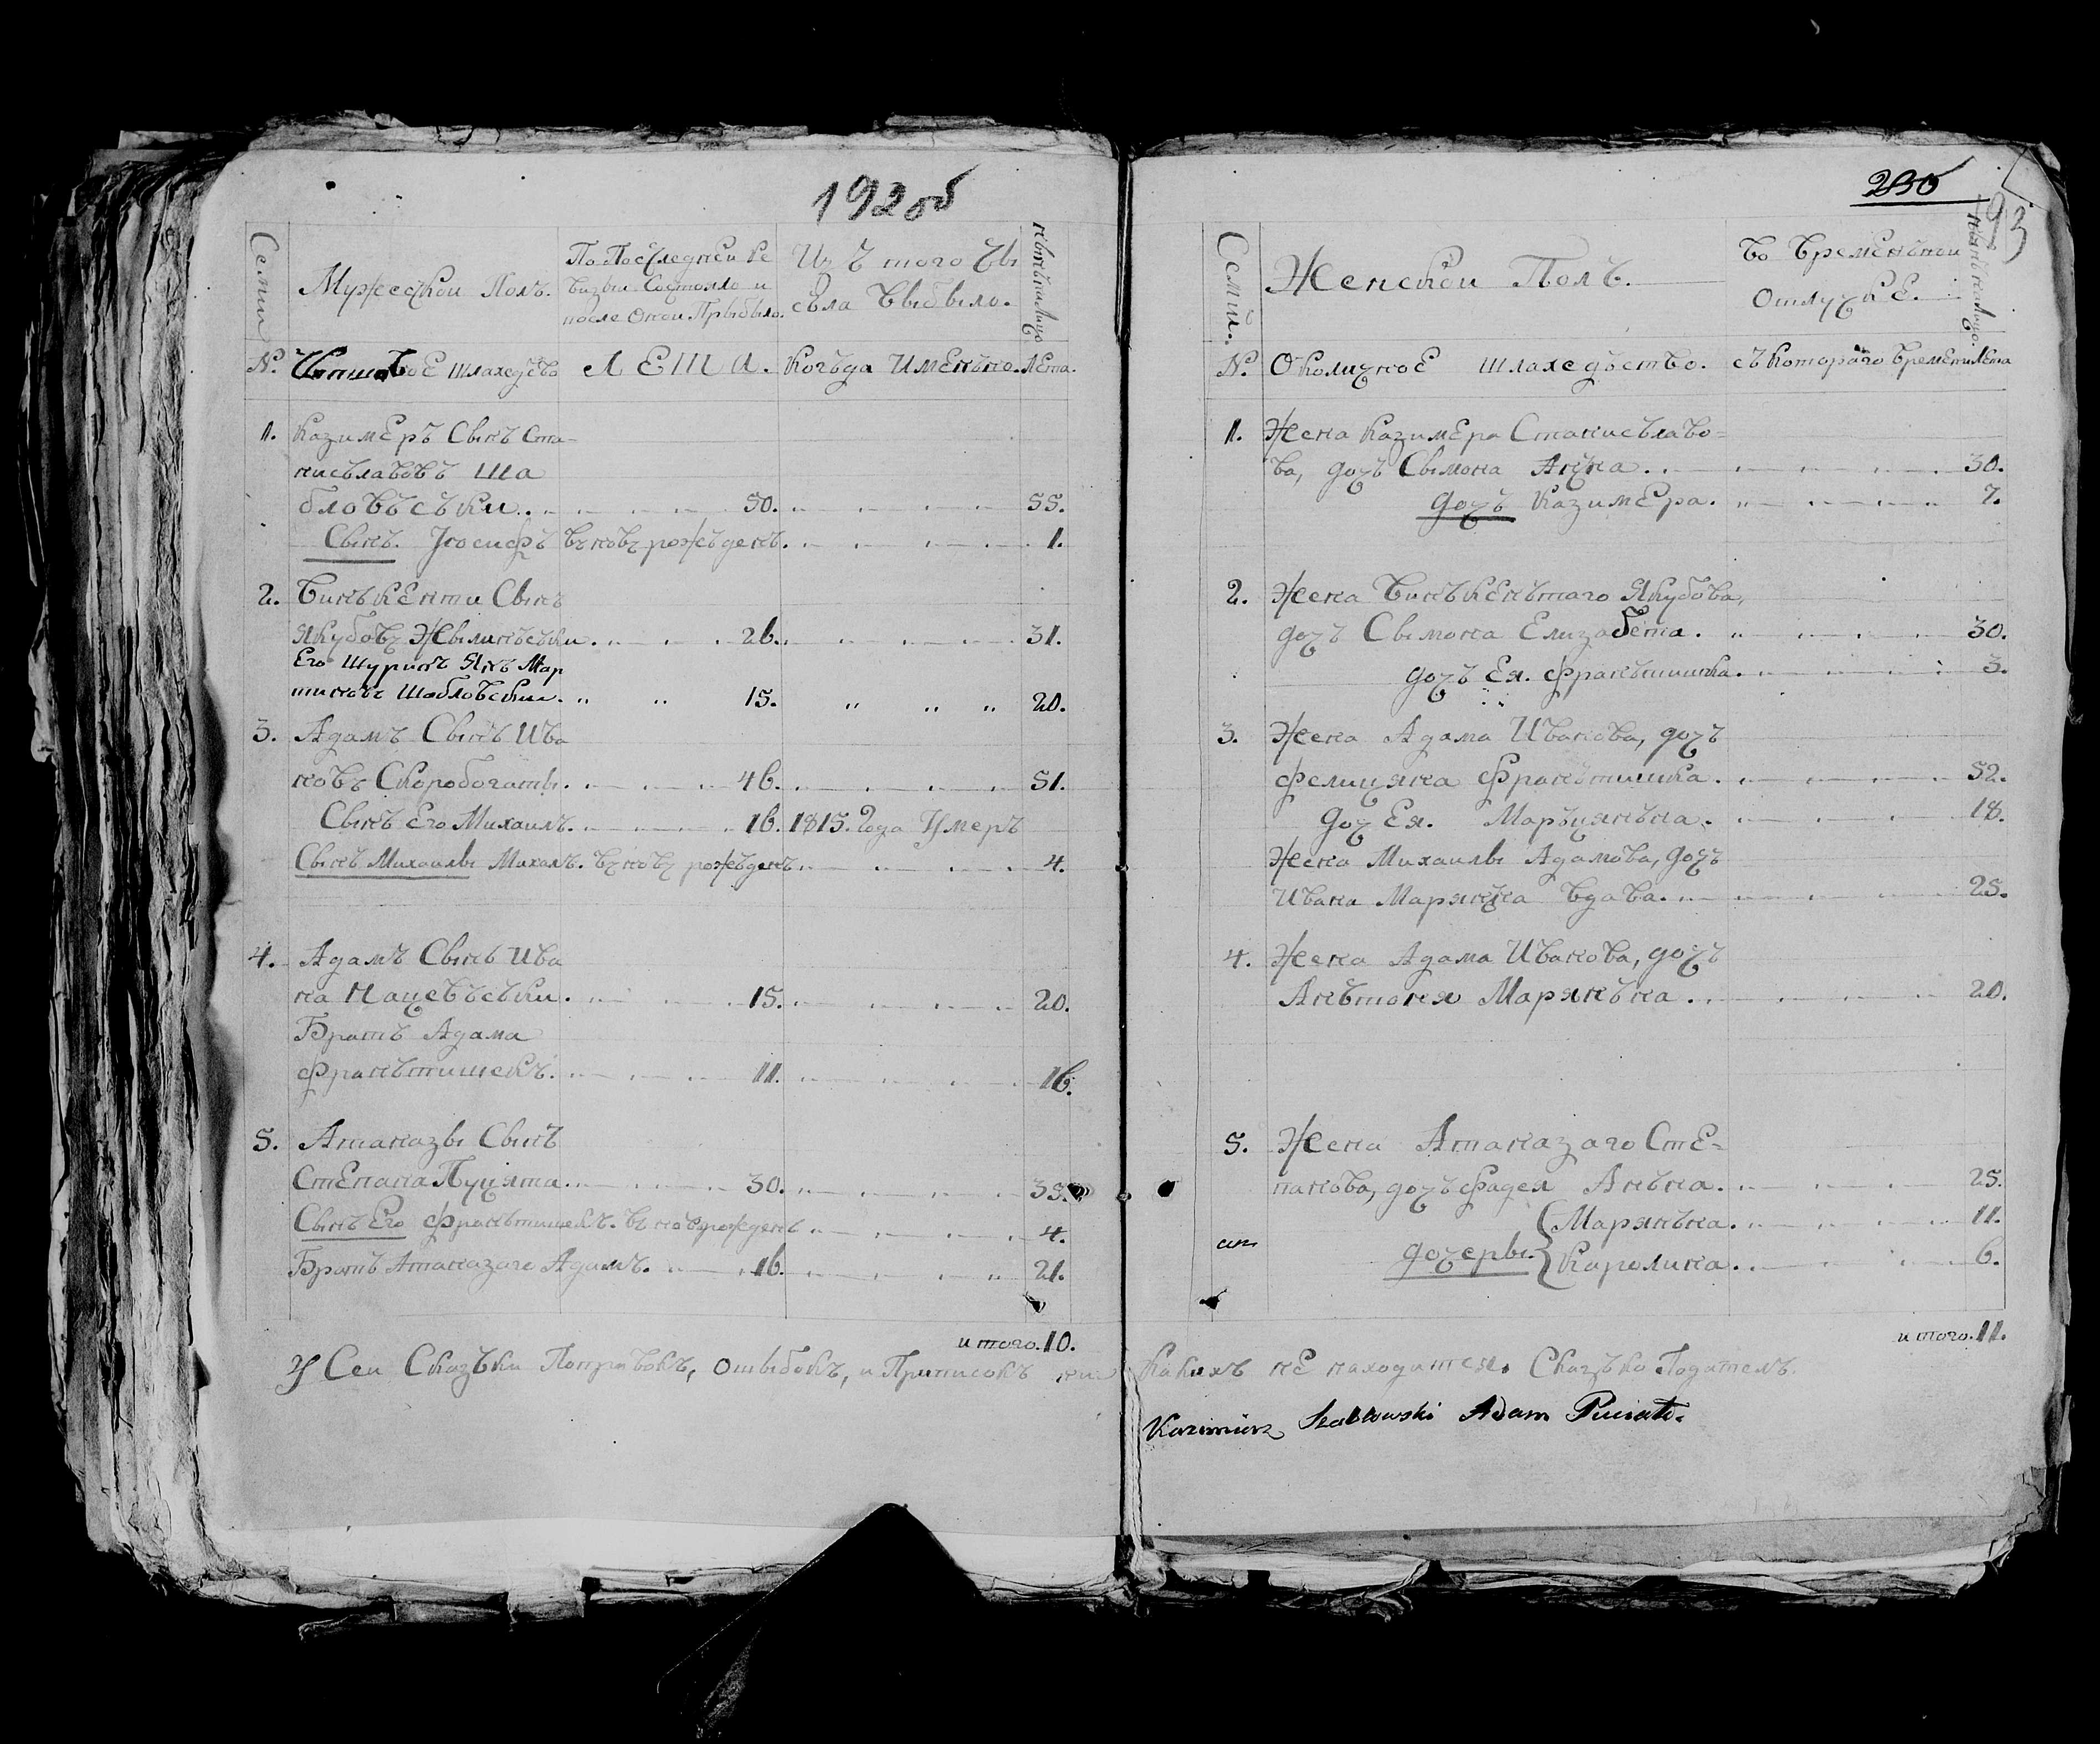 192 об
Семии
Мужеской Полъ.
По Последней Ре
визыи Состояло и
после Оной Прыбыло.
Изъ того Чы
съла Выбыло.
Ныне на Лицо
№.
Шляхедство
ЛЕТА.
Когъда Именьно.
Лета.
1. Казимеръ Сынъ Ста-
нисълавовъ Ша
бловъсъки. 50. 55.
Сынъ. Иосифъ въновъ рожъденъ. 1.
2. Винъкенти Сынъ
Якубовъ Жылинъсъки. 26. 31.
Его Шуринъ Янъ Мар
тиновъ Шабловский. 15. 20.
3. Адамъ Сынъ Ива
новъ Скоробогаты. 46. 51.
Сынъ Его Михаилъ. 16. 1815. Года Умеръ
Сынъ Михаилы Михалъ. въновъ рожъденъ 4.
4. Адамъ Сынъ Ива
на Мацевъсъки. 15. 20.
Братъ Адама
Франътишекъ. 11. 16.
5. Атаназы Сынъ
Степана Пуцята. 30. 35.
Сынъ Его Франътишекъ. въновърожденъ 4.
Братъ Атаназаго Адамъ. 16. 21.
итого. 10.
У Сеи Сказъки Поправокъ, Ошыбокъ, и Приписокъ ни
230
193
Семии.
Женской Полъ.
Во Временьной
Отлучке.
Ныне на Лицо.
№. Околичное Шляхедъство. съ Которого Времени Лета
1. Жена Казимера Станисълаво-
ва, дочъ Сымона Анъна. 30.
дочъ Казимера. 7.
2. Жена Винъкенътаго Якубова,
дочъ Сымона Елизабета. 30.
дочъ Ея. Франътишка. 3.
3. Жена Адама Иванова, дочъ
Фелицяна Франътишка. 52.
дочъ Ея. Маръцянъна. 18.
Жена Михаилы Адамова, дочъ
Ивана Маряньна Вдава. 25.
4. Жена Адама Иванова, дочъ
Анътоня Марянъна. 20.
5. Жена Атаназаго Сте-
панова, дочъ Фадея Анъна. 25.
Марянъна. 11.
дочеры.
Каролина. 6.
итого. 11.
Какихъ не находится. Сказъко Податель.
Kazimierz Szabłowski Adam Puciato